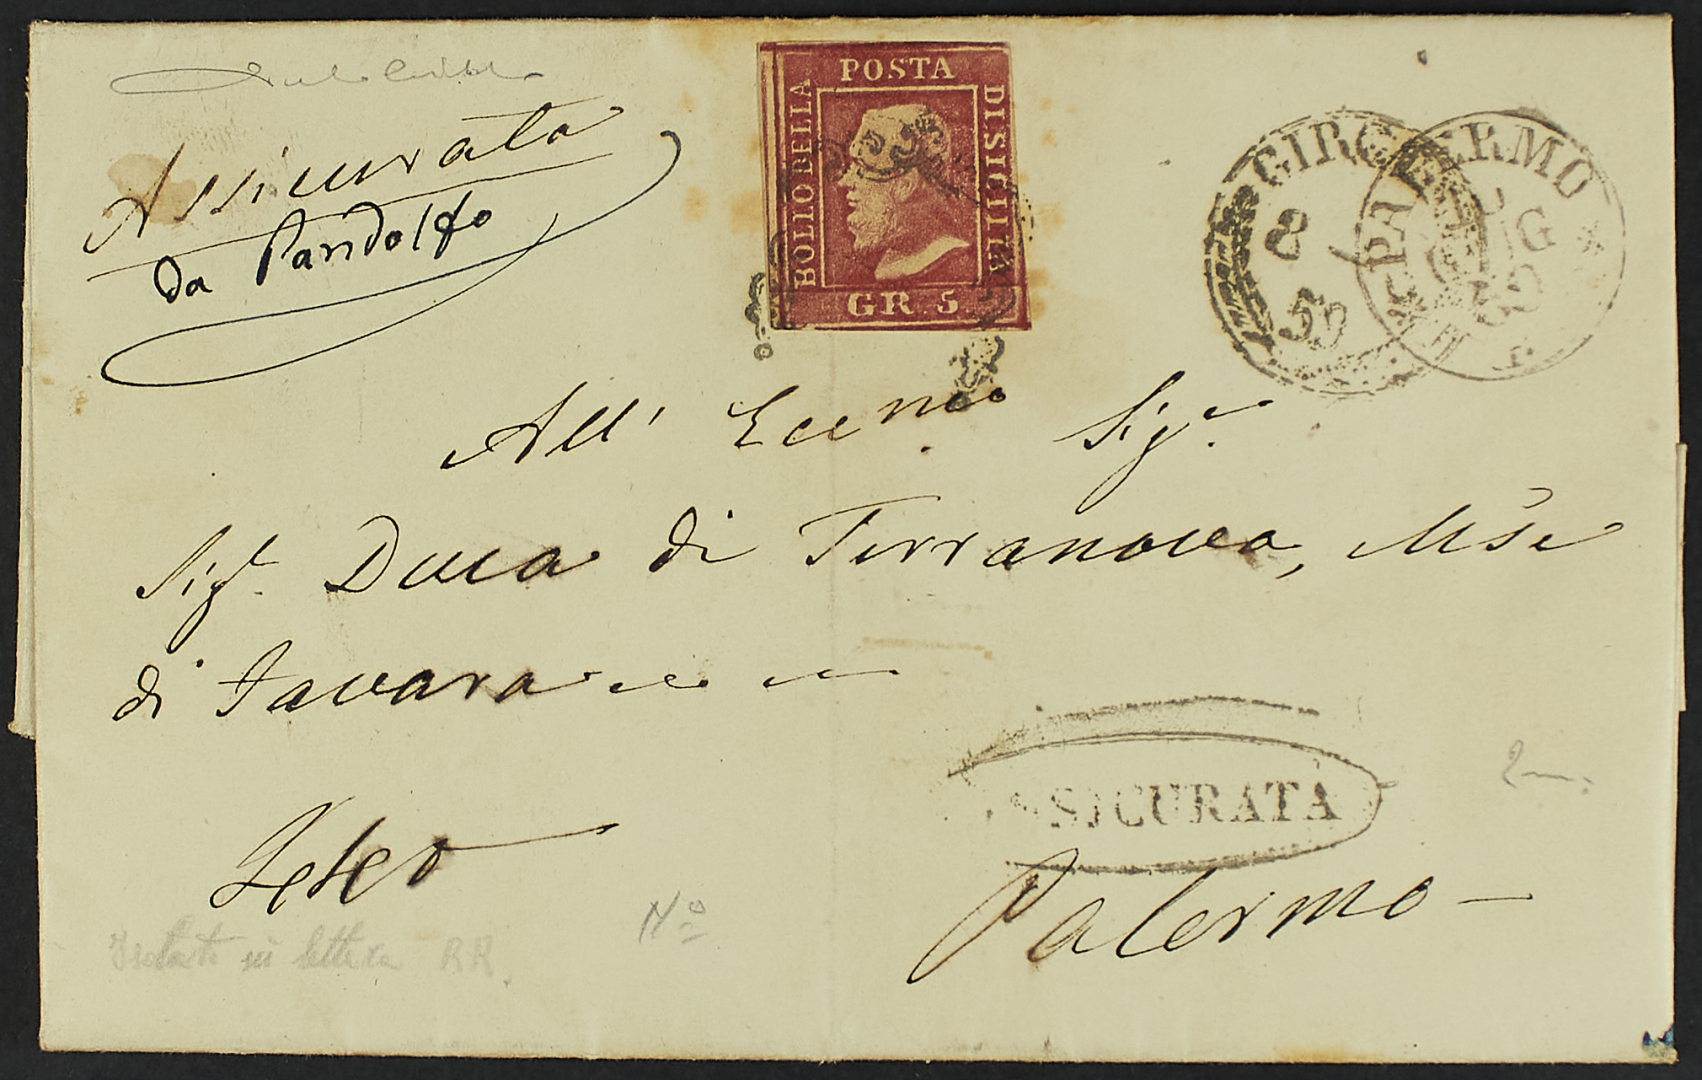 Assicurata
da Pandolfo
POSTA
BOLLO DELLA
DI SICILIA
GR. 5
GIRG
8
59
PALERMO
59
All' Eccmo Sigr.
Sigr. Duca di Terranova, Mse
di Favara
SICURATA
Palermo
No
Isolato su lettera RR.